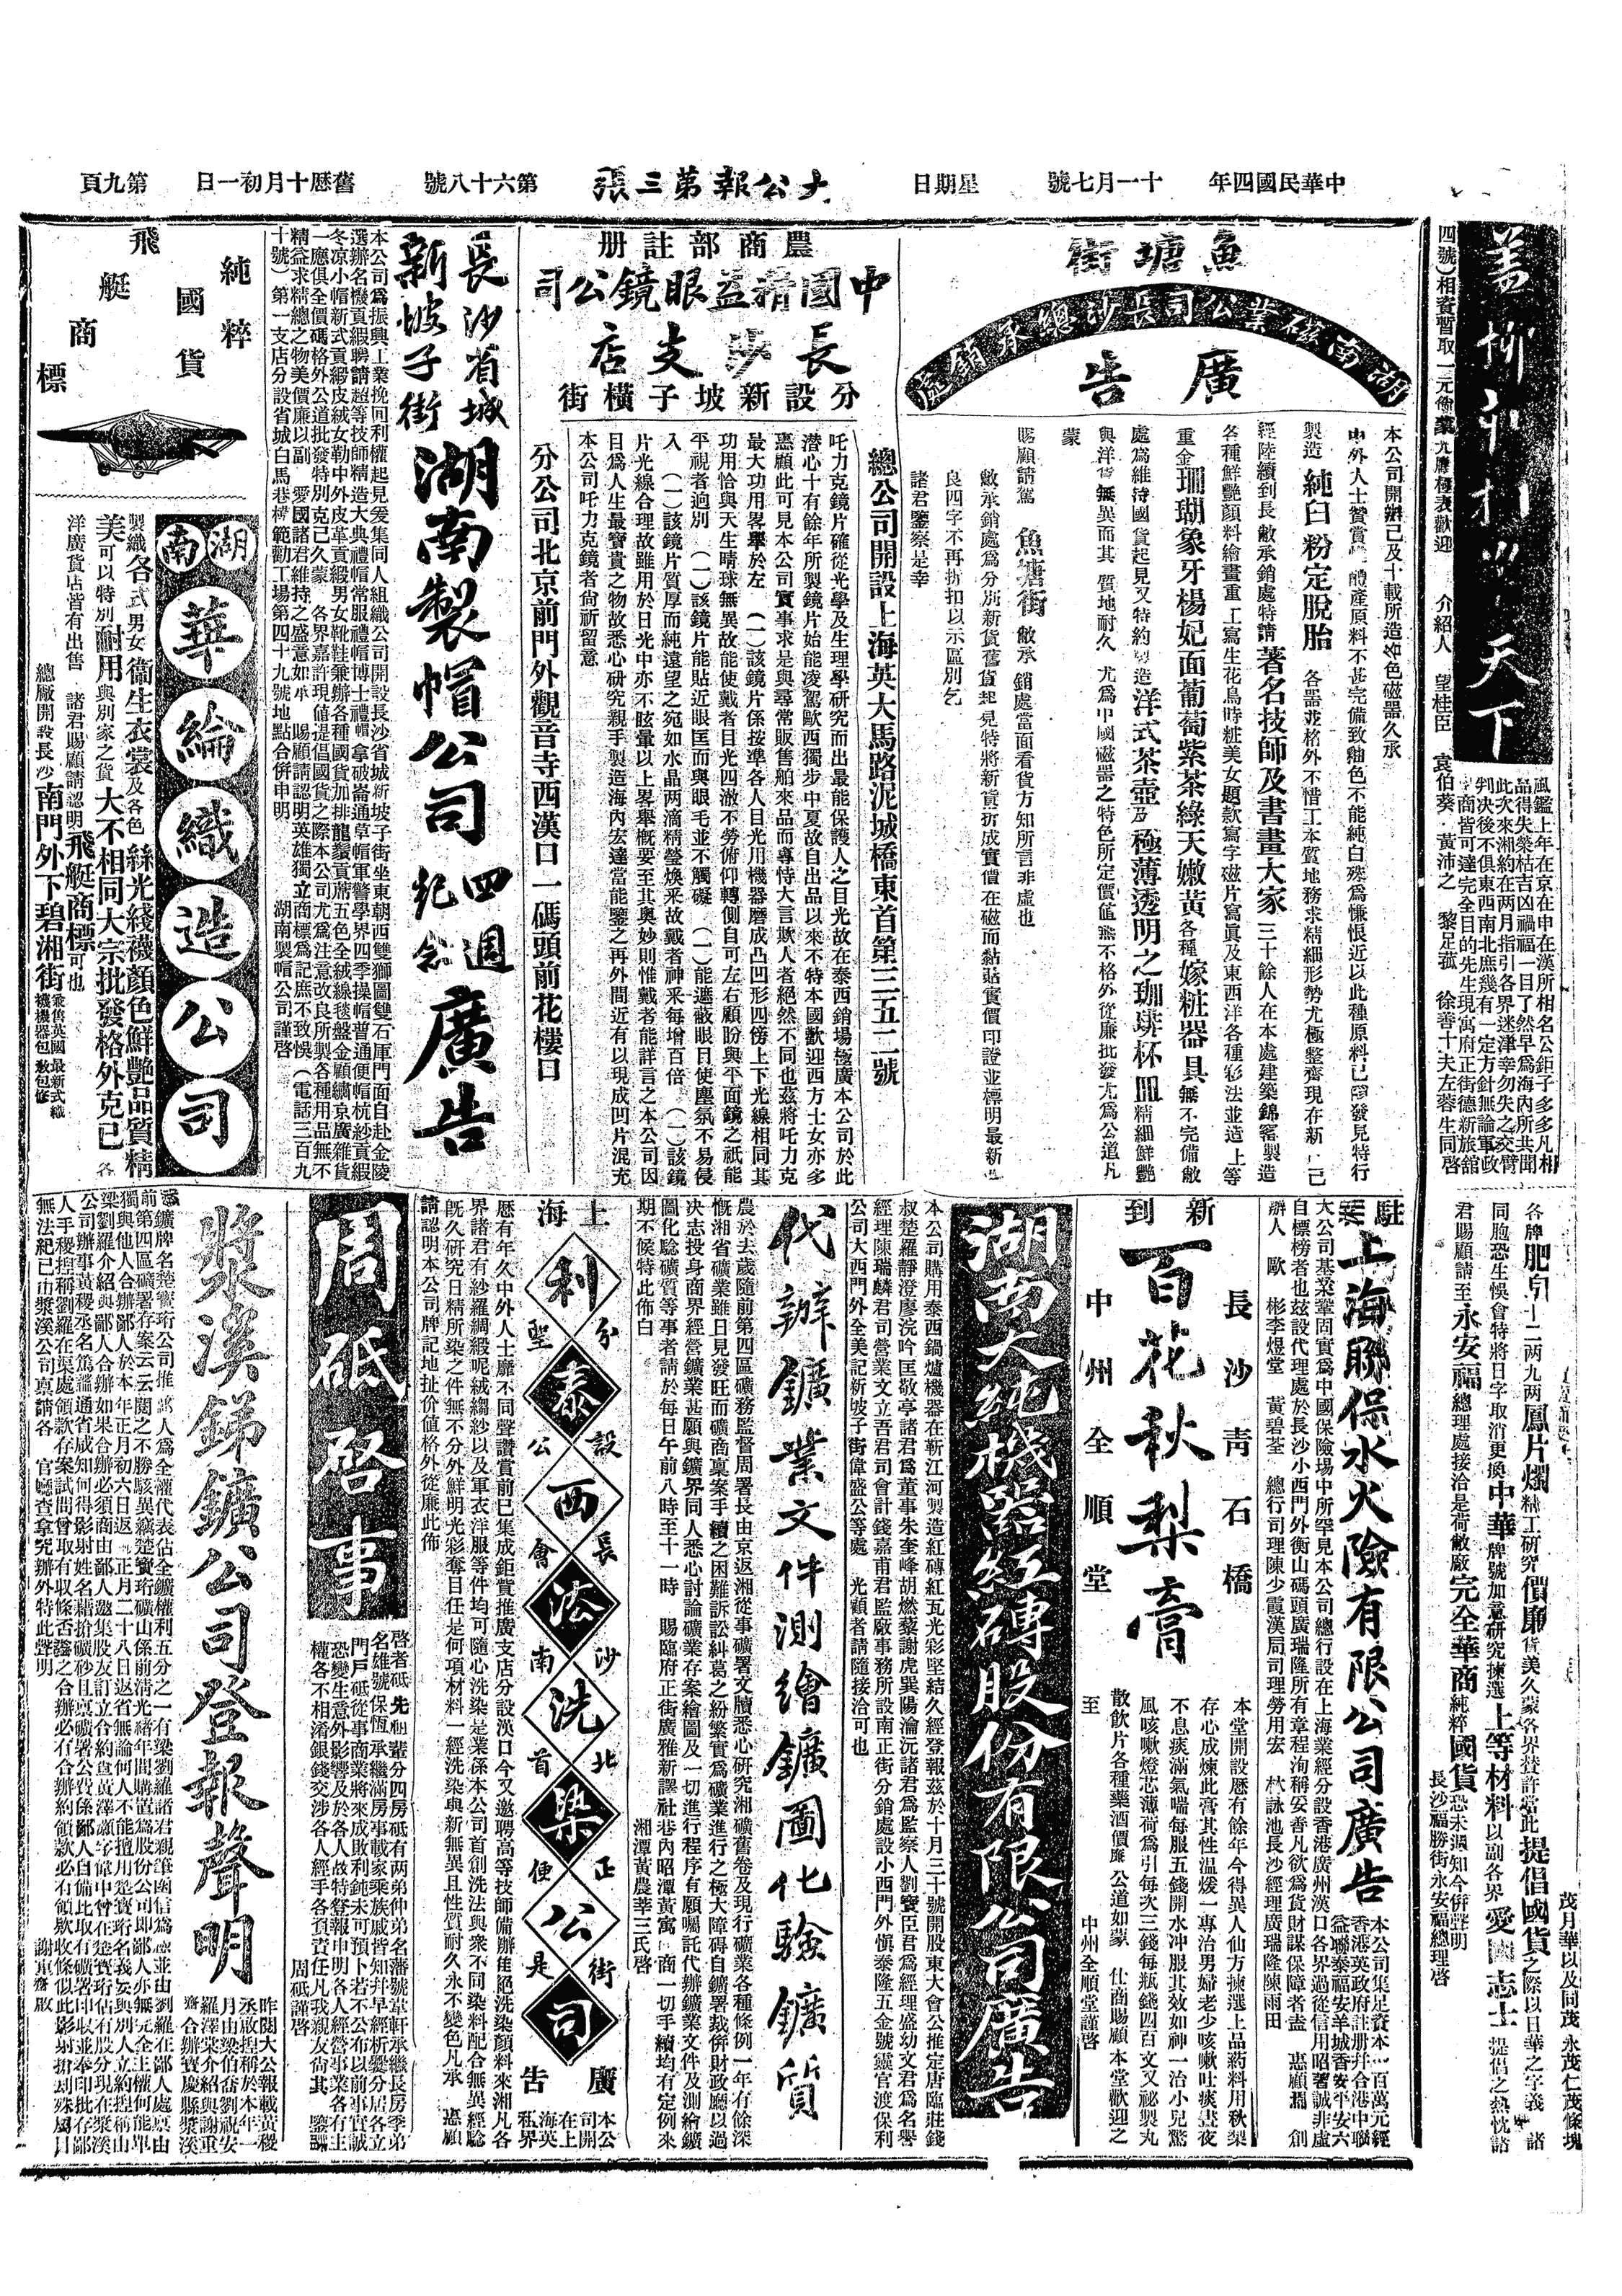 中華民國四年
十一月七號
星期日
大公報第三張
第六十八號
舊歷十月初一日
第九頁
四號）相資暫取一元
介紹人　望桂臣　袁伯葵　黃沛之　黎足菰　徐善十夫左蓉生同啓
天下
風鑑上年在京在申在漢所相名公鉅子多多凡相
品得失榮枯吉凶禍福一目了然早爲海內所共聞
此次來湘約在两月指引各界迷津幸勿失之交臂
判决後不俱東西南北庶幾有一定方針無論軍政
商皆可達完全目的先生現寓府正街德新旅舘
魚塘街
湖南磁業公司長沙總承銷處
廣告
本公司開辦已及十載所造各色磁器久承
製造純白粉定脫胎各器並格外不惜工本質地務求精細形勢尤極整齊現在新
經陸續到長敝承銷處特請著名技師及書畫大家三十餘人在本處建築錦窰製造
各種鮮艷顏料繪畫重工寫生花鳥時粧美女題款寫字磁片寫眞及東西洋各種彩法並造上等
重金珊瑚象牙楊妃面葡萄紫茶綠天嫩黃各種嫁粧器具無不完備敝
處爲維持國貨起見又特約製造洋式茶壺及極薄透明之珈琲杯皿精細鮮艷
與洋貨無異而其質地耐久尤爲中國磁器之特色所定價值無不格外從廉批發尤爲公道凡
蒙
賜顧請駕魚塘街敝承銷處當面看貨方知所言非虛也
敝承銷處爲分別新貨舊貨起見特將新貨折成實價在磁而黏貼實價印證並標明最新
良四字不再折扣以示區別乞
諸君鑒察是幸
農商部註册
中國精益眼鏡公司
長沙支店
分設新坡子横街
總公司開設上海英大馬路泥城橋東首第三五二號
吒力克鏡片確從光學及生理學研究而出最能保護人之目光故在泰西銷場極廣本公司於此
潜心十有餘年所製鏡片始能凌駕歐西獨步中夏故自出品以來不特本國歡迎四方士女亦多
惠顧此可見本公司實事求是與尋常販售舶來品而專恃大言欺人者絕然不同也茲將吒力克
最大功用畧舉於左　（一）該鏡片係按準各人目光用機器磨成凸凹形四傍上下光線相同其
功用恰與天生睛球無異故能使戴者目光四澈不勞俯仰轉側自可左右顧盼與平面鏡之祇能
平視者逈別　（一）該鏡片能貼近眼匡而與眼毛並不觸礙　（一）能遮蔽眼目使塵氛不易侵
入　（一）該鏡片質厚而純遠望之宛如水晶两滴精瑩煥釆故戴者神釆每增百倍　（一）該鏡
片光線合理故雖用於日光中亦不眩暈以上畧舉概要至其奧妙則惟戴者能詳言之本公司因
目爲人生最寶貴之物故悉心研究親手製造海內宏達當能鑒之再外間近有以現成凹片混充
本公司吒力克鏡者尙祈留意
分公司北京前門外觀音寺西漢口一碼頭前花樓口
長沙省城
新坡子街
湖南製帽公司
四週紀念
廣告
本公司爲振興工業挽回利權起見爰集同人組織公司開設長沙省城新坡子街坐東朝西雙獅圖雙石庫門面自赴金陵
選辦名機貢緞聘請超等技師精造大典禮帽常服禮帽博士禮帽拿破崙通草帽軍警學界四季操帽普通便帽杭紗貢緞
冬凉小帽新式貢緞皮絨女勒中外皮革貢緞男女靴鞋乘辦各種國貨加排龍鬚貢蓆五色全絨線毯盤金顧繡京廣雜貨
一應俱全價碼格外公道批發特別克己久蒙　各界嘉許現値提倡國貨之際本公司尤爲注意改良所製各種用品無不
精益求精總之物美價廉以副　愛國諸君維持之盛意如承　賜顧請認明英雄獨立商標爲記庶不致悞（電話三百九
十號）第一支店分設省城白馬巷模範勸工場第四十九號地點合併申明　湖南製帽公司謹啓
純粹國貨
飛艇商標
湖南
華綸織造公司
製織各式男女衞生衣裳及各色絲光綫襪顏色鮮艷品質精
美可以特別耐用與別家之貨大不相同大宗批發格外克已各
洋廣貨店皆有出售　諸君賜顧請認明飛艇商標可也
總廠開設長沙南門外下碧湘街
乘售英國最新式織
襪機器包敎包修
各牌肥皂十二两九两鳳片燭精工研究價廉貨美久蒙各界贊許當此提倡國貨之際以日華之字義諸
同胞恐生悞會特將日字取消更換中華牌號加意研究揀選上等材料以副各界愛國志士提倡之熱忱諸
君賜顧請至永安福總理處接洽是荷敝廠完全華商純粹國貨恐未週知今併聲明
長沙福勝街永安福總理啓
駐湘上海聯保水火險有限公司廣告
本公司集足資本一百萬元經
香港英政府註册幷合港中聯
益聯泰福安羊城香安平安六
大公司基業鞏固實爲中國保險塲中所罕見本公司總行設在上海業經分設香港廣州漢口各界過從信用昭著誠非虛
自標榜者也茲設代理處於長沙小西門外衡山碼頭廣瑞隆所有章程洵稱妥善凡欲爲貨財謀保障者盍　惠顧焉　創
辦人　歐　彬李煜堂　黃碧荃　總行司理陳少霞漢局司理勞用宏　林詠池長沙經理廣瑞隆陳雨田
新到
百花秋梨膏
長沙靑石橋
中州全順堂
本堂開設歷有餘年今得異人仙方揀選上品葯料用秋梨
存心成煉此膏其性温煖一專治男婦老少咳嗽吐痰晝夜
不息痰滿氣喘每服五錢開水冲服其效如神一治小兒驚
風咳嗽燈芯薄荷爲引每次三錢每瓶錢四百文又祕製丸
散飲片各種藥酒價廉公道如蒙　仕商賜顧本堂歡迎之
至　中州全順堂謹啓
湖南大純機器紅磚股份有限公司廣告
本公司購用泰西鍋爐機器在靳江河製造紅磚紅瓦光彩堅結久經登報茲於十月三十號開股東大會公推定唐臨莊錢
叔楚羅靜澄廖浣吟匡敬亭諸君爲董事朱奎峰胡燃藜謝虎巽陽瀹沅諸君爲監察人劉寶臣君爲經理盛幼文君爲名譽
經理陳瑞麟君司營業文立吾君司會計錢嘉甫君監廠事務所設南正街分銷處設小西門外愼泰隆五金號靈官渡保利
公司大西門外全美記新坡子街偉盛公等處　光顧者請隨接洽可也
代辦鑛業文件測繪鑛圖化驗鑛質
農於去歲隨前第四區礦務監督周署長由京返湘從事礦署文牘悉心研究湘礦舊卷及現行礦業各種條例一年有餘深
慨湘省礦業雖日見發旺而礦商稟案手續之困難訴訟糾葛之紛繁實爲礦業進行之極大障碍自鑛署裁併財政廳以過
决志投身商界經營鑛業甚願與鑛界同人悉心討論礦業存案繪圖及一切進行程序有願囑託代辦鑛業文件及測繪鑛
圖化騐礦質等事者請於每日午前八時至十一時　賜臨府正街廣雅新譯社巷內昭潭黃寓　商一切手續均有定例來
期不候特此佈白
湘潭黃農莘三氏啓
上海
利泰西法洗染公司
分設長沙北正街
聖公會南首便是
廣告
本公司開
在上海英
租界
歷有年久中外人士靡不同聲讚賞前已集成鉅貲推廣支店分設漢口今又邀聘高等技師備辦佳絕洗染顏料來湘凡各
界諸君有紗羅綢緞呢絨縐紗以及軍衣洋服等件均可隨心洗染是業係本公司首創洗法與衆不同染料配合無異經騐
旣久研究日精所染之件無不分外鮮明光彩奪目任是何項材料一經洗染與新無異且性質耐久永不變色凡承　惠顧
請認明本公司牌記地扯价值格外從廉此佈
周砥啓事
啓者砥先祖輩分四房砥有两弟仲弟名藩號韋軒承繼長房季弟
名雄號保恆承繼滿房事載家乘族戚皆知幷早經析爨分居各立
門戶砥從事商業將來成敗利鈍未可預卜若不公布以前事實誠
恐變生意外影響及於各人故特登報申明各人經營事業各有主
權各不相淆銀錢交涉各人經手各負責任凡我親友尙其　鑒諒
周砥謹啓
漿溪銻鑛公司登報聲明
昨閱大公報載黃稷
丞敢控稱於本年一
月由梁伯喬劉祝安
羅澤棠介紹與謝重
齋合辦寶慶縣漿溪
前第四區礦署存案云云閱之不勝駭異竊楚寶珩礦山係前清光緒年間購置爲股份公司卽鄙人亦無完全主權何能單
獨與他人合辦鄙人於本年正月初六日返正月二十八日返省無論何人不能擅用楚寶珩名義妄與別人立約控稱山
無法紀已由漿溪公司稟請各　官廳查拿究辦外特此聲明